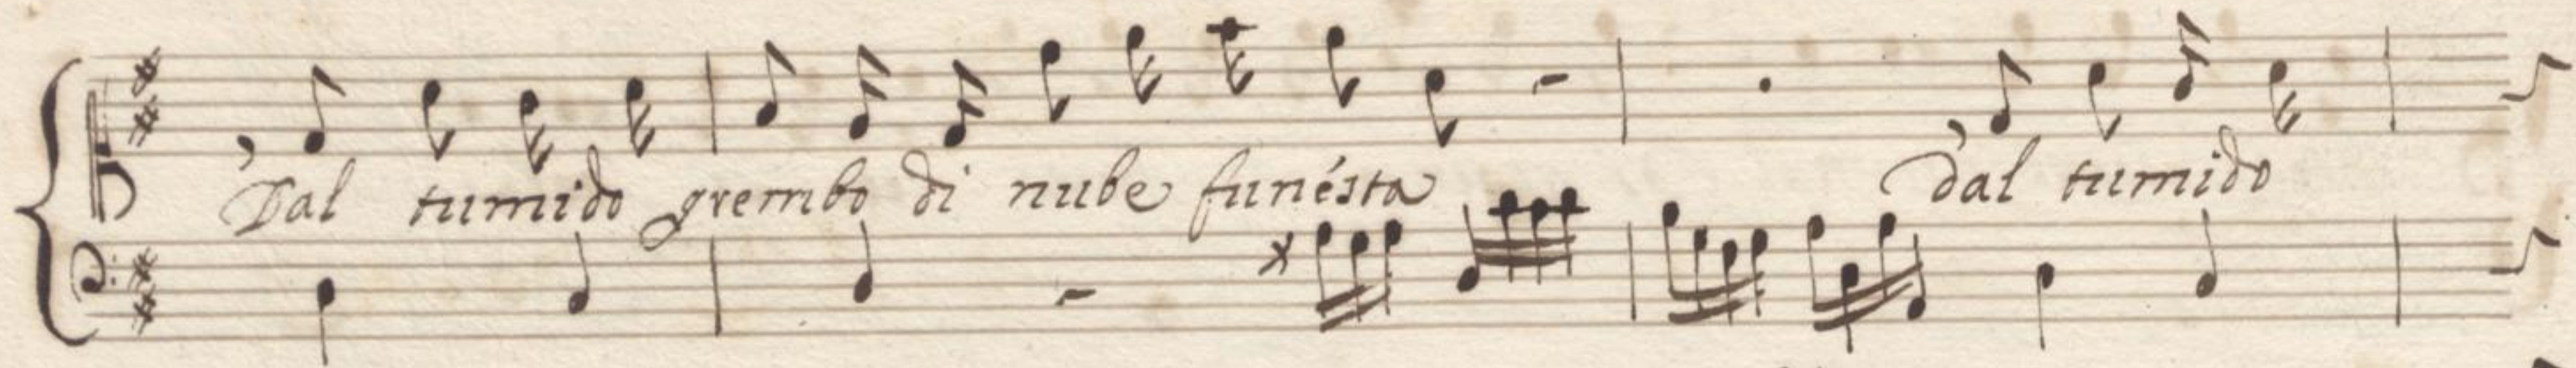 Dal tumido grembo di nube funésta Dal tumido